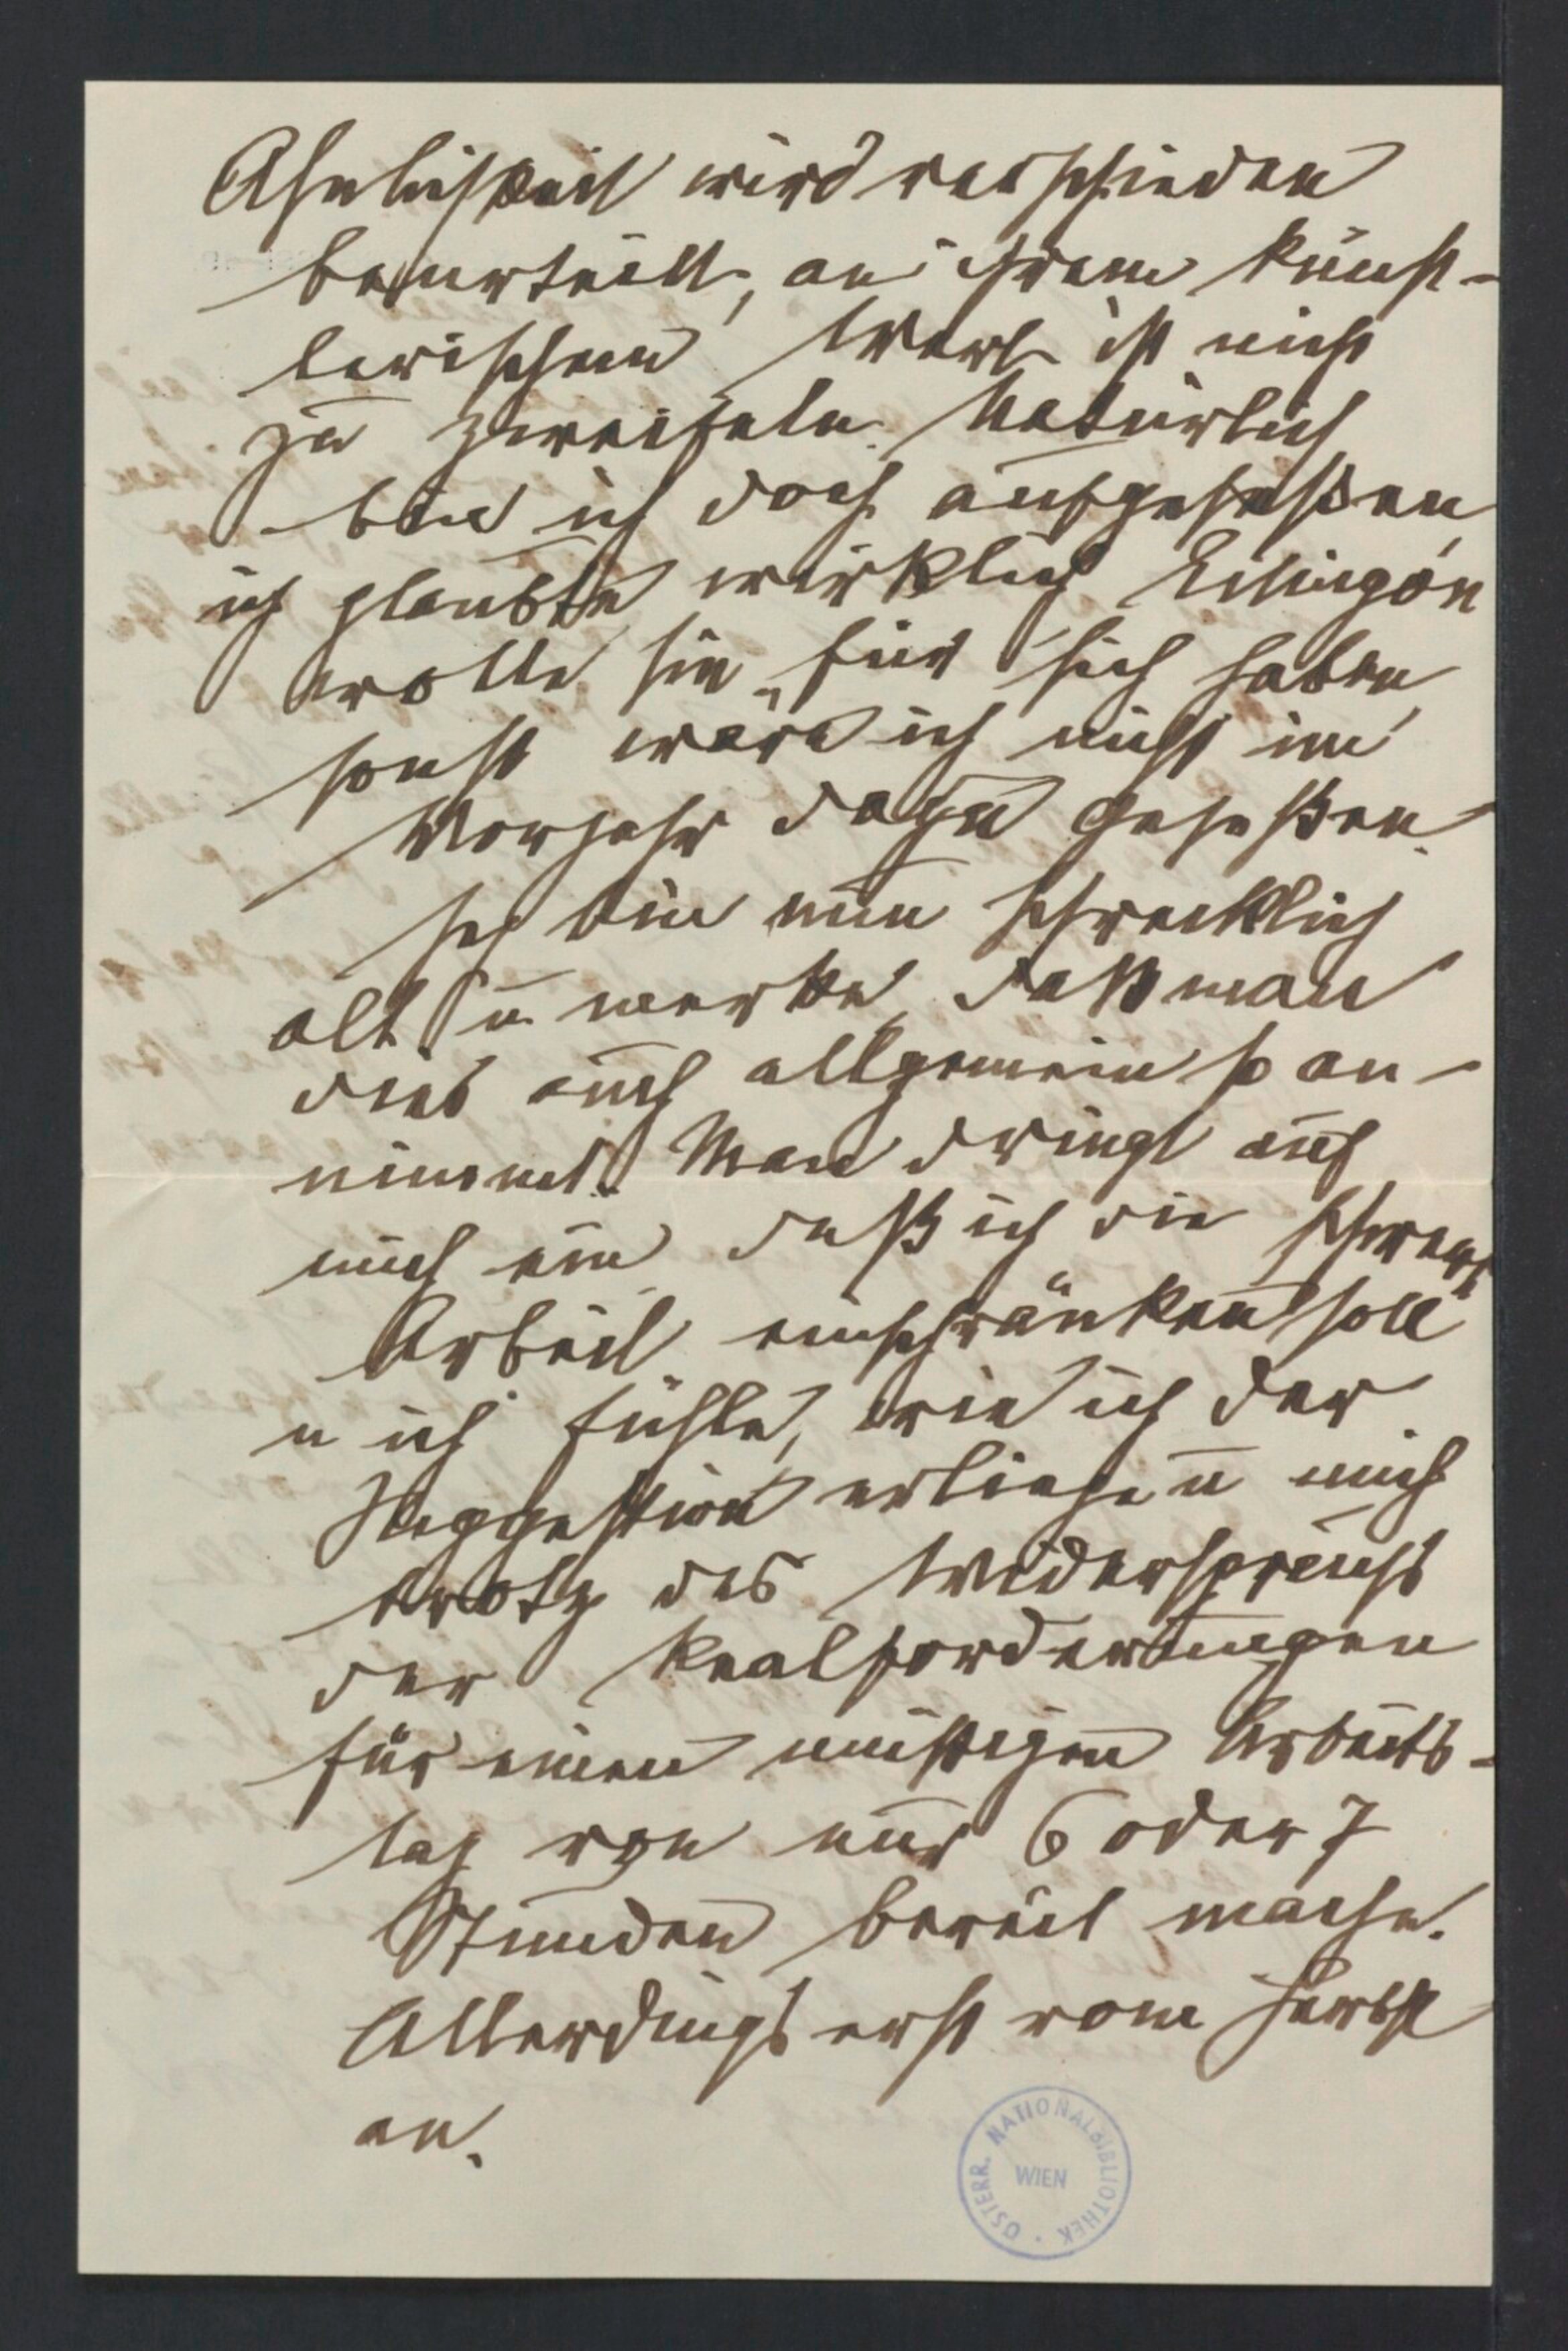 Ähnlichkeit wird verschieden
beurteilt, an ihrem künst-
lerischem Wert ist nicht
zu zweifeln. Natürlich
bin ich doch aufgesessen,
ich glaubte wirklich Eitingon
wolle sie für sich haben,
sonst wäre ich nicht im
Vorjahr dazu gesessen.
Ich bin nun schrecklich
alt u merke, daß man
dies auch allgemein so an-
nimmt. Man dringt auf
mich ein daß ich die schwere
Arbeit einschränken soll
u ich fühle, wie ich der
Suggestion erliege u mich
trotz des Widerspruchs
der Realforderungen
für einen mäßigen Arbeits-
tag von nur 6 oder 7
Stunden bereit mache.
Allerdings erst vom Herbst
an.
ÖSTERR. NATIONALBIBLIOTHEK
WIEN